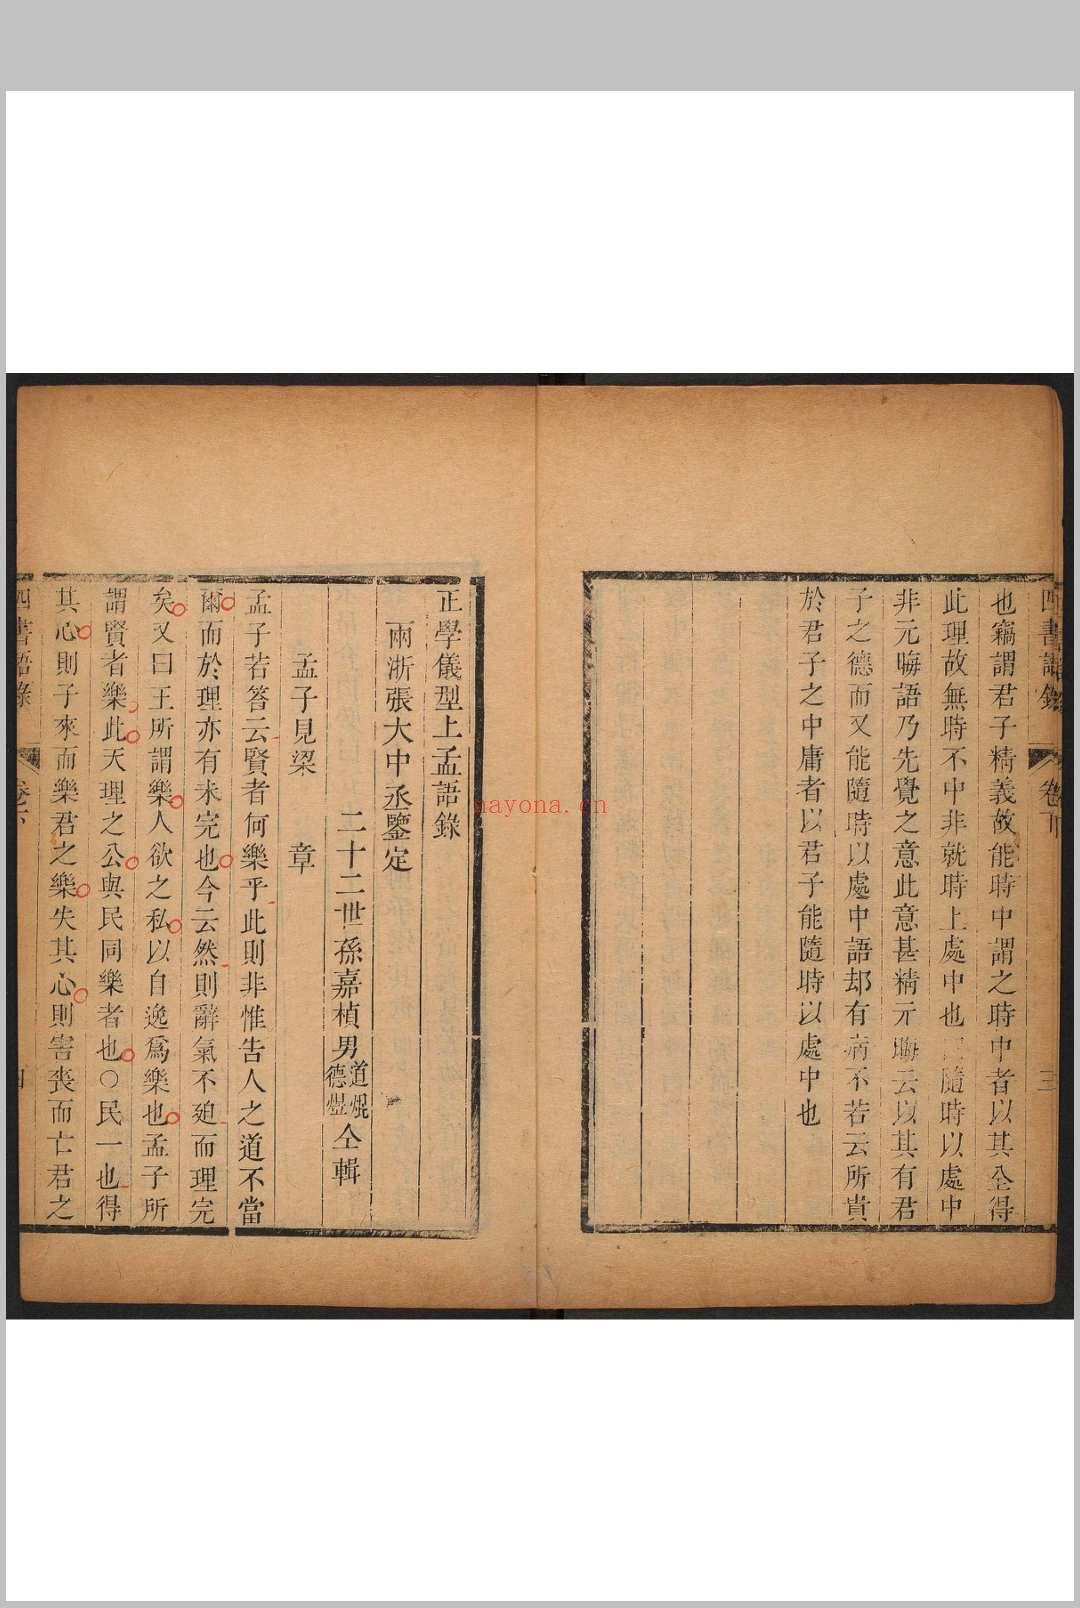 四書語錄 卷下 三
也竊謂君子精義故能時中謂之時中者以其全得
此理故無時不中非就時上處中也曰隨時以處中
非元晦語乃先覺之意此意甚精元晦云以其有君
子之德而又能隨時以處中語却有病不若云所貴
於君子之中庸者以君子能隨時以處中也
正學儀型上孟語錄
兩浙張大中丞鑒定
二十二世孫嘉楨男道焜德㷍仝輯
孟子見梁 章
孟子若答云賢者何樂乎此則非惟告人之道不當
爾而於理亦有未完也今云然則辭氣不迫而理完
矣又曰王所謂樂人欲之私以自逸為樂也孟子所
謂賢者樂此天理之公與民同樂者也○民一也得
其心則子來而樂君之樂失其心則害喪而亡君之
四書語錄
nayona.cn